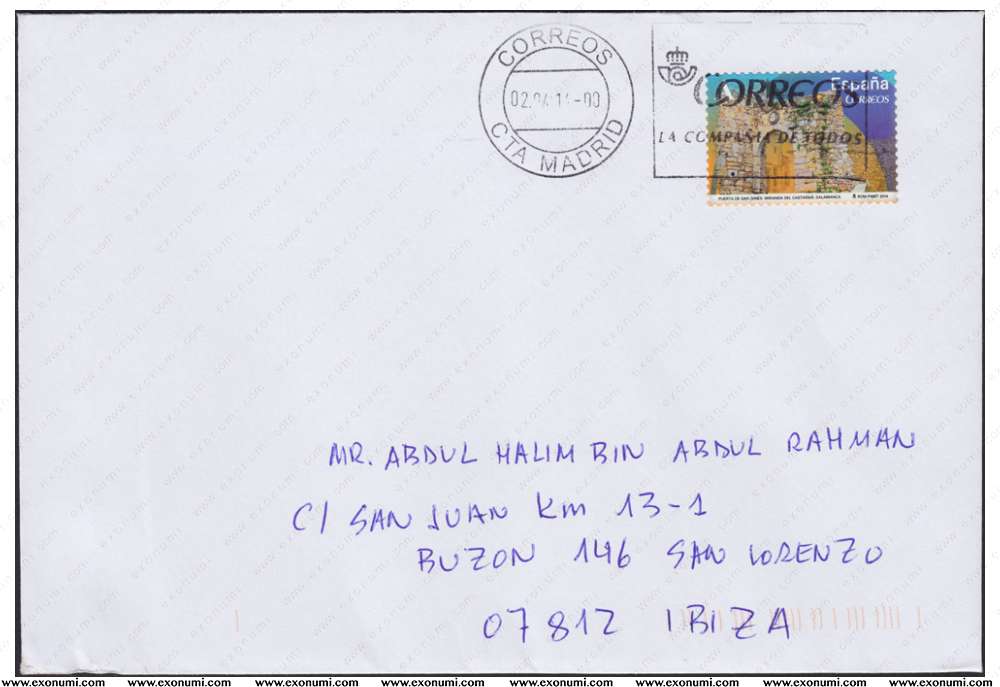 CORREOS
02.04.14-00
CTA MADRID
CORREOS
LA COMPAÑIA DE TODOS
A
España
CORREOS
PUERTA DE SAN GINES. MIRANDA DEL CASTAÑAR. SALAMANCA
RCM-FNMT 2014
MR. ABDUL HALIM BIN ABDUL RAHMAN
C/ SAN JUAN Km 13-1
BUZON 146 SAN LORENZO
07812 IBIZA
www.exonumi.com www.exonumi.com www.exonumi.com www.exonumi.com www.exonumi.com www.exonumi.com www.exonumi.com www.exonumi.com